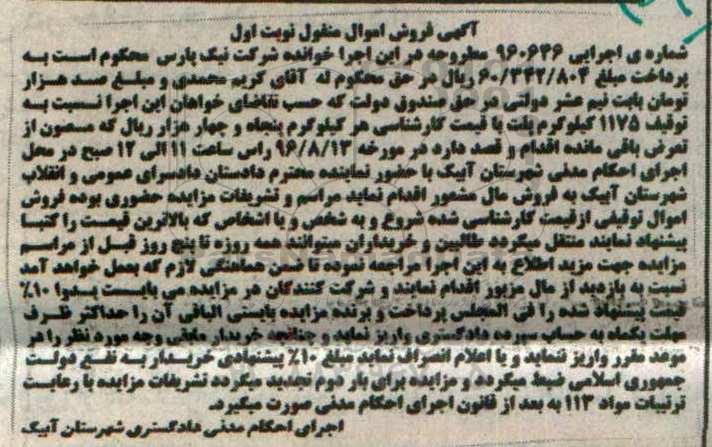 آگهی فروش اموال منقول نوبت اول
شماره ی اجرایی ۹۶۰۶۳۶ مطروحه در این اجرا خوانده شرکت نیک پارس محکوم است به
پرداخت مبلغ ۶۰/۳۴۲/۸۰۴ ریال در حق محکوم له آقای کریم محمدی و مبلغ صد هزار
تومان بابت نیم عشر دولتی در حق صندوق دولت که حسب تقاضای خواهان این اجرا نسبت به
توقیف ۱۱۷۵ کیلوگرم پلت با قیمت کارشناسی هر کیلوگرم پنجاه و چهار هزار ریال که مصون از
تعرض باقی مانده اقدام و قصد دارد در مورخه ۹۶/۸/۱۳ راس ساعت ۱۱ الی ۱۲ صبح در محل
اجرای احکام مدنی شهرستان آبیک با حضور نماینده محترم دادستان دادسرای عمومی و انقلاب
شهرستان آبیک به فروش مال مشعور اقدام نماید مراسم و تشریفات مزایده حضوری بوده فروش
اموال توقیفی ازقیمت کارشناسی شده شروع و به شخص و یا اشخاص که بالاترین قیمست را کتبا
پیشنهاد نمایند منتقل میگردد طالبین و خریداران میتوانند همه روزه تا پنج روز قبل از مراسم
مزایده جهت مزید اطلاع به این اجرا مراجعه نموده تا ضمن هماهنگی لازم که بعمل خواهد آمد
نسبت به بازدید از مال مزبور اقدام نمایند و شرکت کنندگان در مزایده می بایست بدوا ۱۰٪
قیمت پیشنهاد شده را فی المجلس پرداخت و برنده مزایده بایستی الباقی آن را حداکثر ظرف
مهلت یکماه به حساب سپرده دادگستری واریز نماید و چنانچه خریدار مابقی وجه مورد نظر را در
موعد مقرر واریز ننماید و یا اعلام انصراف نماید مبلغ ۱۰٪ پیشنهادی خریدار به نفع دولت
جمهوری اسلامی ضبط میگردد و مزایده برای بار دوم تجدید میگردد تشریفات مزایده با رعایت
ترتیبات مواد ۱۱۳ به بعد از قانون اجرای احکام مدنی صورت میگیرد.
اجرای احکام مدنی دادگستری شهرستان آبیک